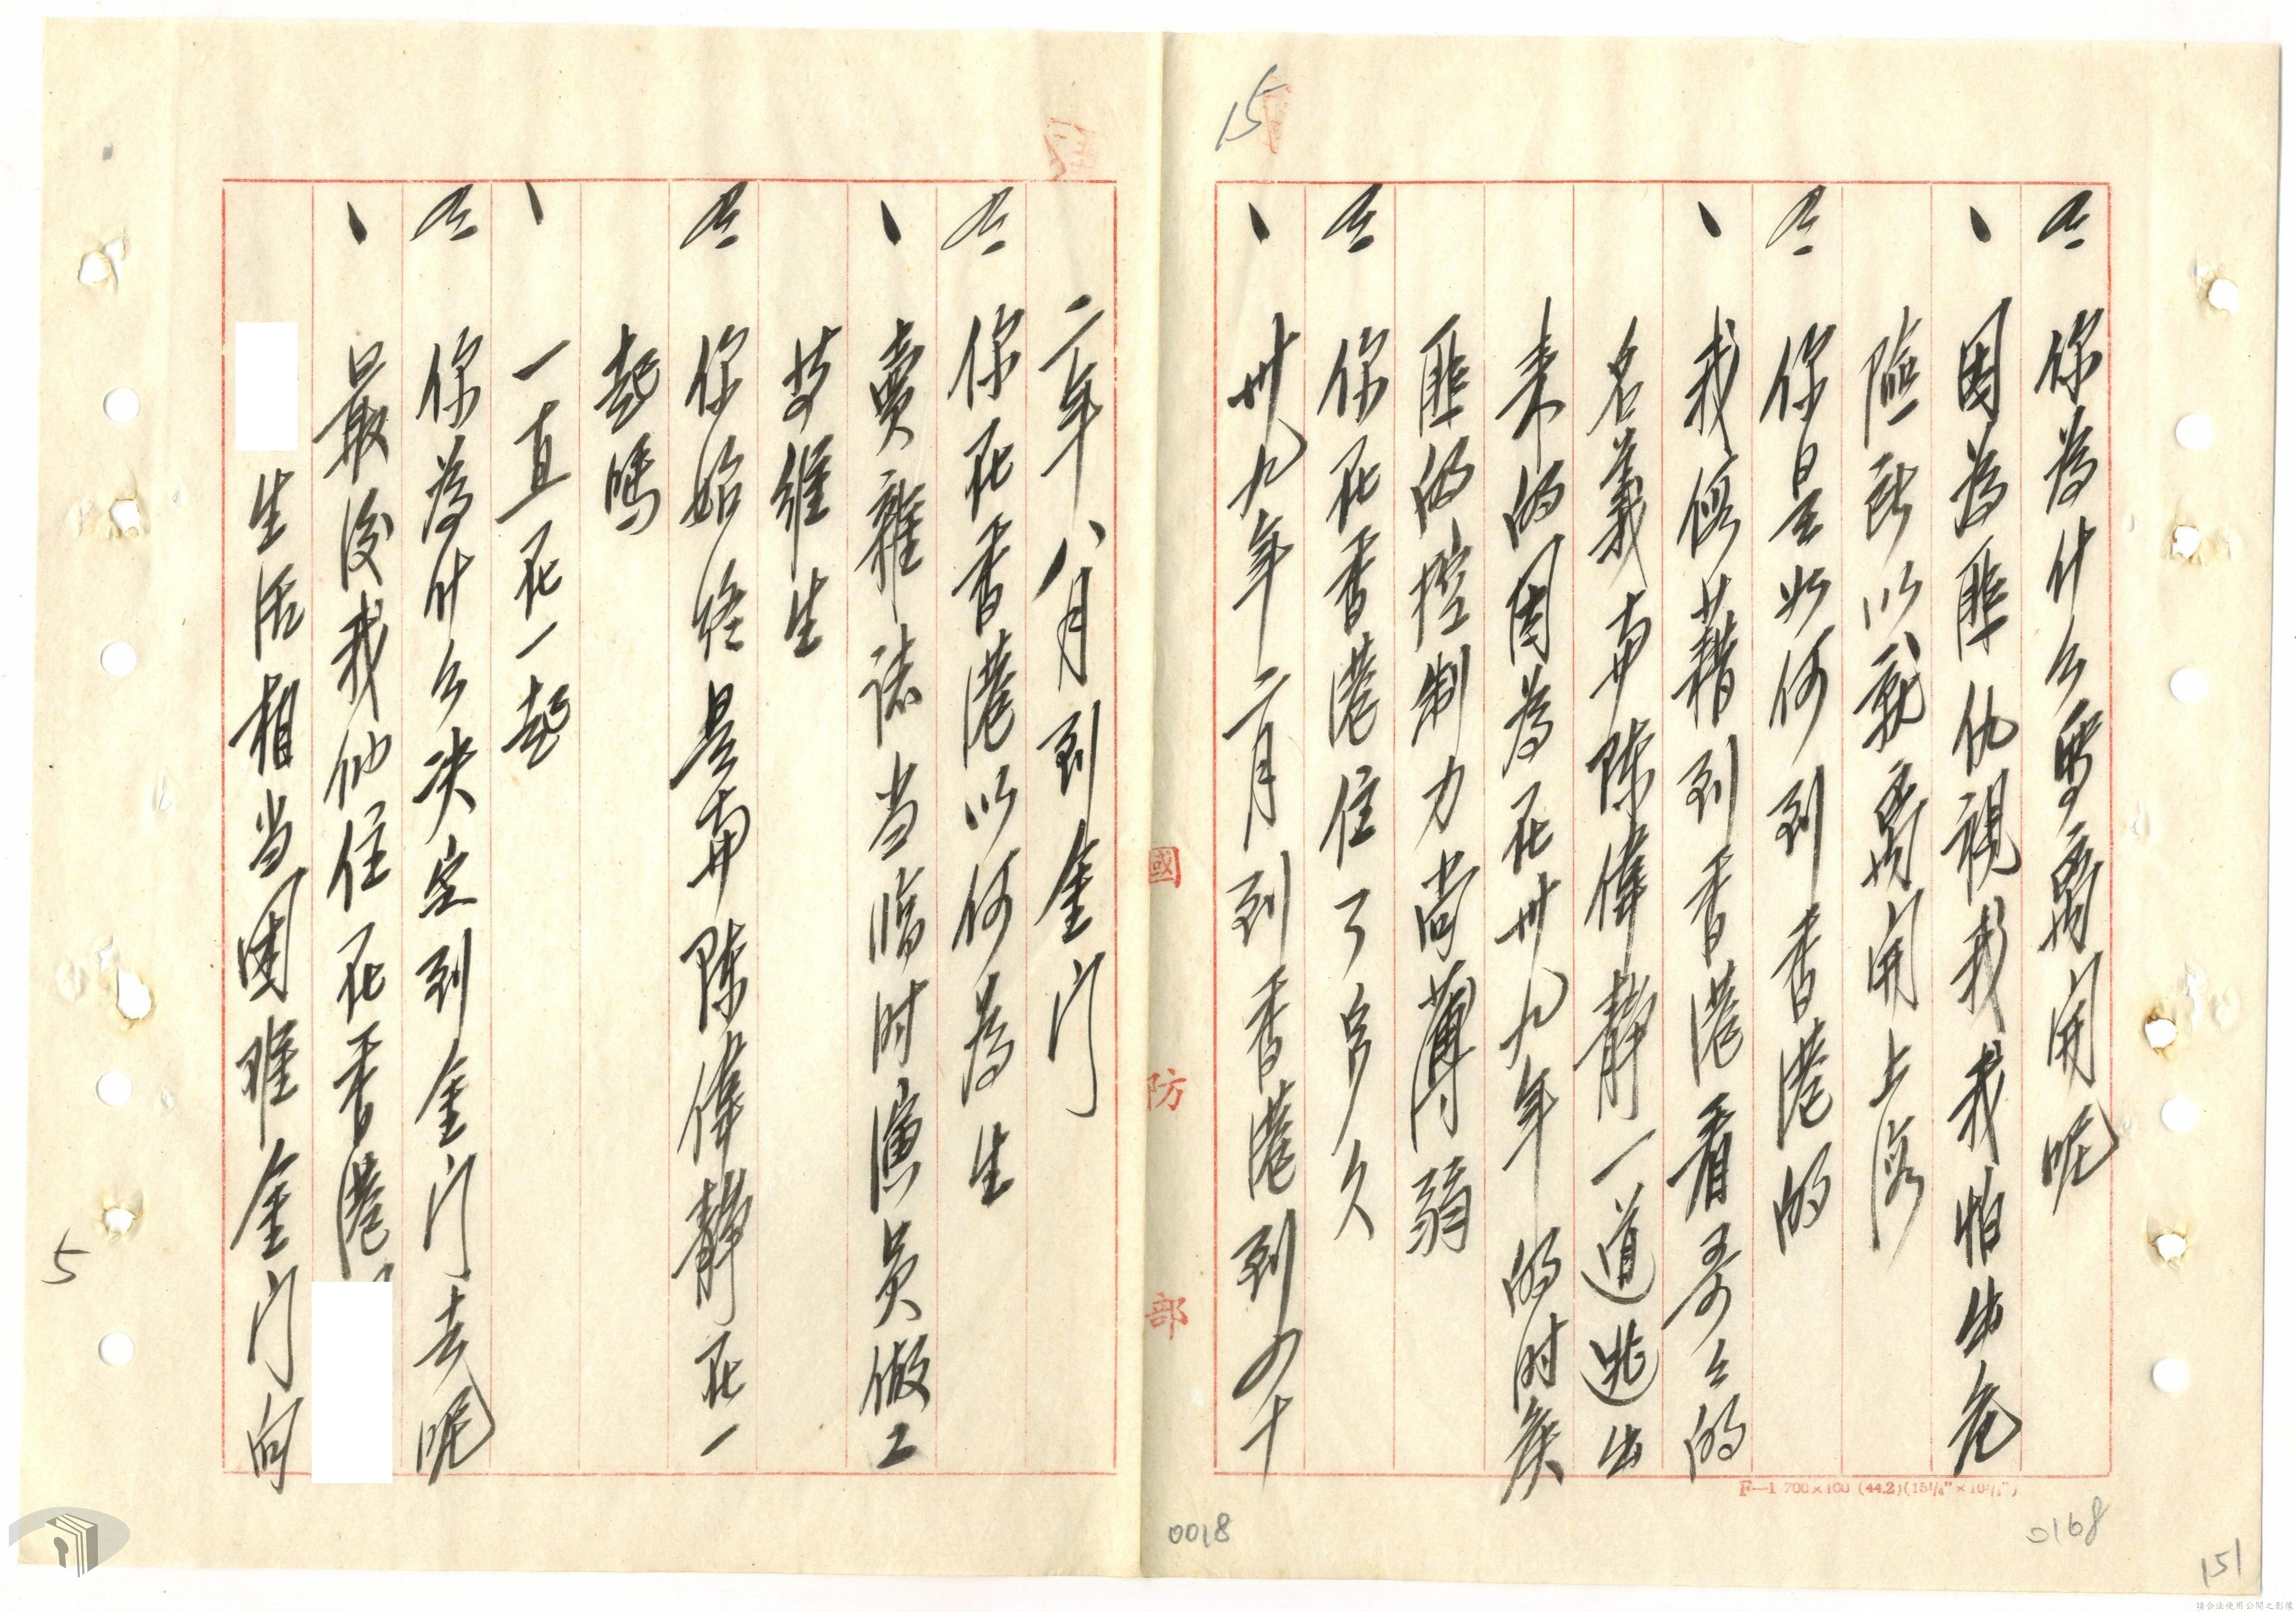 15
問 你為什么要离開呢
、 因為匪仇視我我怕出危
險所以就离開上海
問 你是如何到香港的
、 我係藉到香港看哥哥的
名義甫陳偉靜一道逃出
來的因為在卅九年的时候
匪的控制力尚薄弱
問 你在香港住了多久
、 卅九年二月到香港到四十
國防部
二年八月到金门
問 你在香港以何為生
、 賣雜誌当临时演員做工
等維生
問 你始終是甫陳偉靜在一
起嗎
、 一直在一起
問 你為什么决定到金门去呢
、 最後我他住在香港
生活相当困难金门向
F—1 700×100 (44.2)
0018
0168
151
5
請合法使用公開之影像